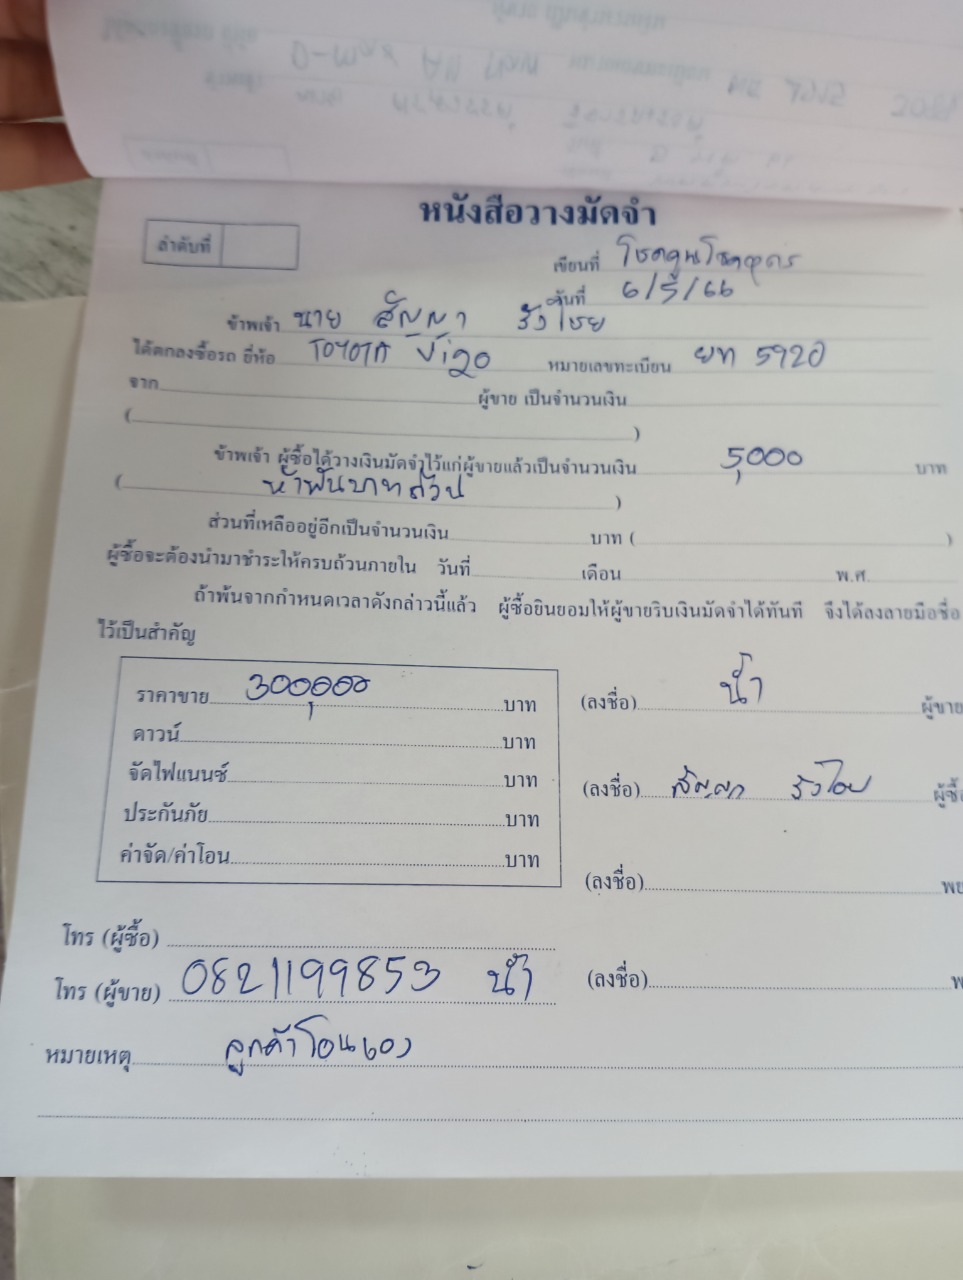 หนังสือวางมัดจำ
ลำดับที่
เขียนที่ โชคคูนโชคอุดร
วันที่ 6/5/66
ข้าพเจ้า นาย สัญญา วังไชย
ได้ตกลงซื้อรถ ยี่ห้อ TOYOTA Vigo หมายเลขทะเบียน ยท 5920
จาก ผู้ขาย เป็นจำนวนเงิน
( )
ข้าพเจ้า ผู้ซื้อได้วางเงินมัดจำไว้แก่ผู้ขายแล้วเป็นจำนวนเงิน 5,000 บาท
( ห้าพันบาทถ้วน )
ส่วนที่เหลืออยู่อีกเป็นจำนวนเงิน บาท ( )
ผู้ซื้อจะต้องนำมาชำระให้ครบถ้วนภายใน วันที่ เดือน พ.ศ.
ถ้าพ้นจากกำหนดเวลาดังกล่าวนี้แล้ว ผู้ซื้อยินยอมให้ผู้ขายริบเงินมัดจำได้ทันที จึงได้ลงลายมือชื่อ
ไว้เป็นสำคัญ
ราคาขาย 300,000 บาท
ดาวน์ บาท
จัดไฟแนนซ์ บาท
ประกันภัย บาท
ค่าจัด/ค่าโอน บาท
(ลงชื่อ) น้ำ ผู้ขาย
(ลงชื่อ) สัญญา วังไชย ผู้ซื้อ
(ลงชื่อ) พย
(ลงชื่อ) พ
โทร (ผู้ซื้อ)
โทร (ผู้ขาย) 0821199853 น้ำ
หมายเหตุ ลูกค้าโอนเอง